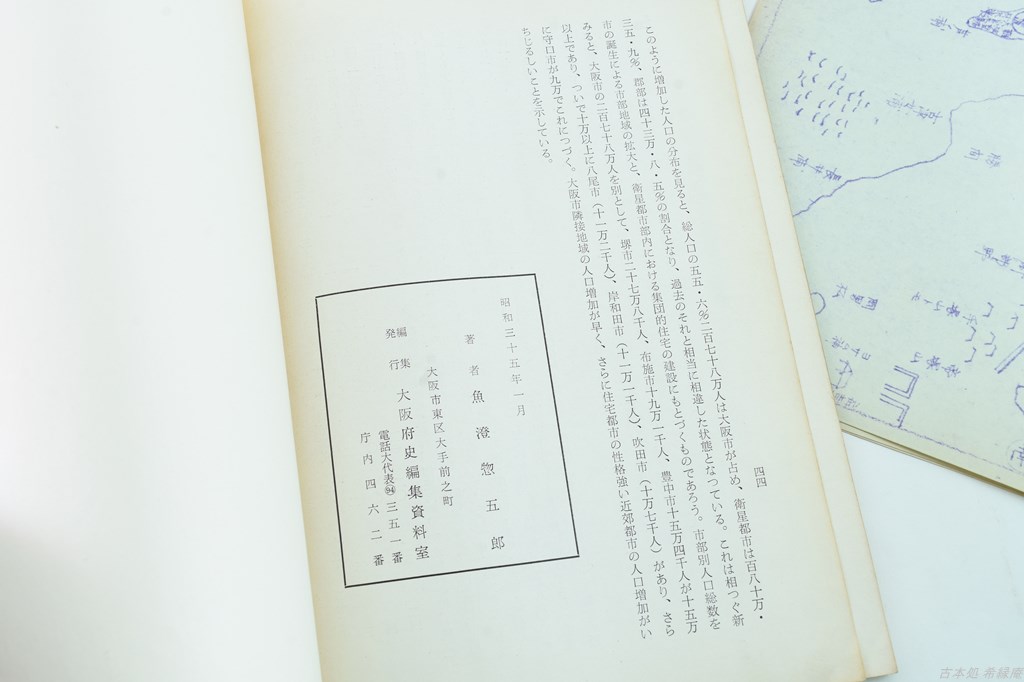 このように増加した人口の分布を見ると、総人口の五五・六%二百七十八万人は大阪市が占め、衛星都市は百八十万・
三五・九%、郡部は四十三万・八・五%の割合となり、過去のそれと相当に相違した状態となっている。これは相つぐ新
市の誕生による市部地域の拡大と、衛星都市部内における集団的住宅の建設にもとづくものであろう。市部別人口総数を
みると、大阪市の二百七十八万人を別として、堺市二十七万八千人、布施市十九万一千人、豊中市十五万四千人が十五万
以上であり、ついで十万以上に八尾市(十一万二千人)、岸和田市(十一万一千人)、吹田市(十万七千人)があり、さら
に守口市が九万でこれにつづく。大阪市隣接地域の人口増加が早く、さらに住宅都市の性格強い近郊都市の人口増加がい
ちじるしいことを示している。
四四
昭和三十五年一月
著者 魚澄惣五郎
大阪市東区大手前之町
編集
発行 大阪府史編集資料室
電話大代表(94)三五一番
庁内四六二番
古本処 希縁庵